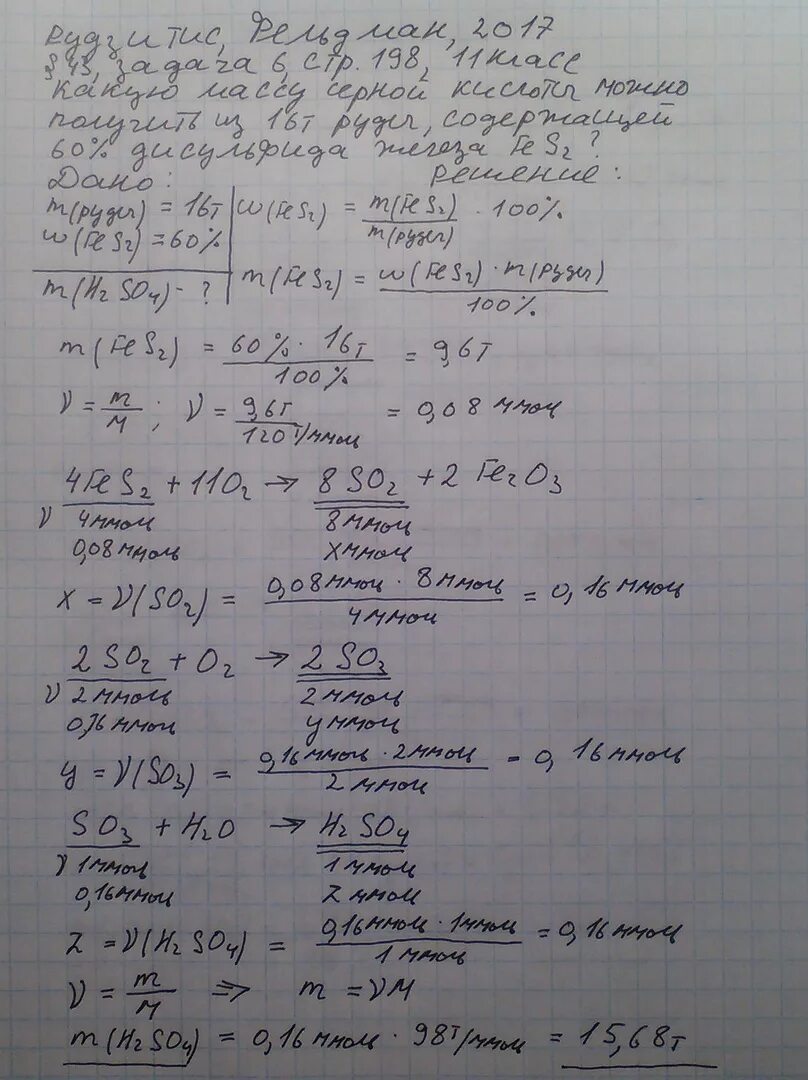 Рудзитис, Фельдман, 2017
§ 43, задача 6, стр. 198, 11 класс
Какую массу серной кислоты можно
получить из 16т руды, содержащей
60% дисульфида железа FeS₂?
Дано: Решение:
m(руды) = 16т | w(FeS₂) = m(FeS₂)/m(руды) · 100%
w(FeS₂) = 60%
m(H₂SO₄) - ? | m(FeS₂) = w(FeS₂) · m(руды)/100%
m(FeS₂) = 60% · 16т/100% = 9,6т
ν = m/M; ν = 9,6т/120т/ммоль = 0,08 ммоль
4FeS₂ + 11O₂ → 8SO₂ + 2Fe₂O₃
ν 4ммоль 8ммоль
0,08ммоль xммоль
x = ν(SO₂) = 0,08ммоль · 8ммоль/4ммоль = 0,16ммоль
2SO₂ + O₂ → 2SO₃
ν 2ммоль 2ммоль
0,16ммоль yммоль
y = ν(SO₃) = 0,16ммоль · 2ммоль/2ммоль = 0,16ммоль
SO₃ + H₂O → H₂SO₄
ν 1ммоль 1ммоль
0,16ммоль zммоль
z = ν(H₂SO₄) = 0,16ммоль · 1ммоль/1ммоль = 0,16ммоль
ν = m/M ⇒ m = νM
m(H₂SO₄) = 0,16ммоль · 98т/ммоль = 15,68т